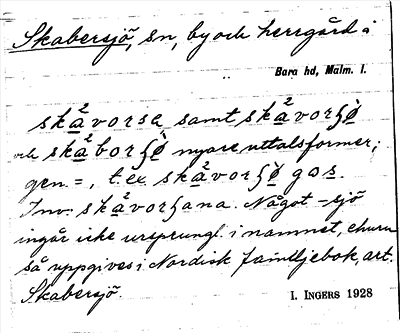 Skabersjö, sn, by och herrgård i
Bara hd, Malm. l.
ska²vorsa samt ska²vorʃø̀
och ska²borʃø̀ nyare uttalsformer;
gen. =, t.ex. ska²vorʃø̀ gos.
Inv. ska²vorʃana. Något -sjö
ingår icke ursprungl. i namnet, ehuru
så uppgives i Nordisk familjebok, art.
Skabersjö.
I. INGERS 1928